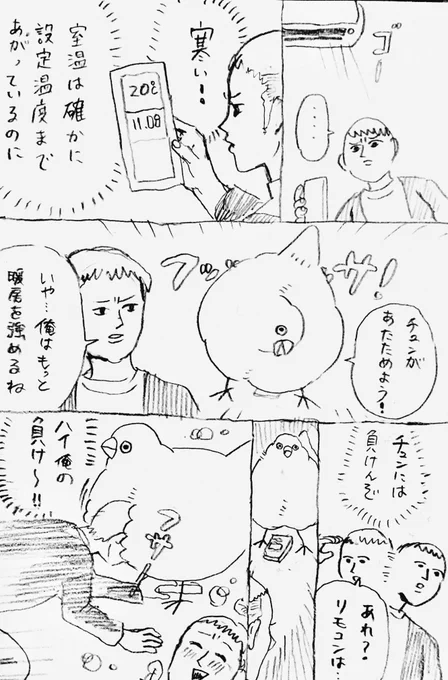 ゴー
‥‥
寒い!
20℃
11.08
室温は確かに
設定温度まで
あがっているのに
フッサァ!
チュンが
あたためよう!
いや…俺はもっと
暖房を強めるね
チュンには
負けんぞ
あれ?
リモコンは…
ハイ俺の
負け〜!!